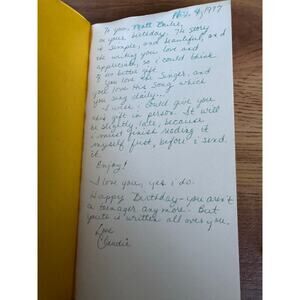 Nov. 4, 1977
To you, Matt
on your birthday. The story
is simple, and beautiful, and
the writing you love and
appreciate, so I could think
of no better gift.
You love the Singer, and
you love His Song which
you sing daily...
I wish I could give you
this gift in person. It will
be slightly late, because
I must finish reading it
myself first, before I send
it.
Enjoy!
I love you, yes I do.
Happy Birthday - you aren't
a teenager anymore. But
you're is written all over you.
Love
Claudia